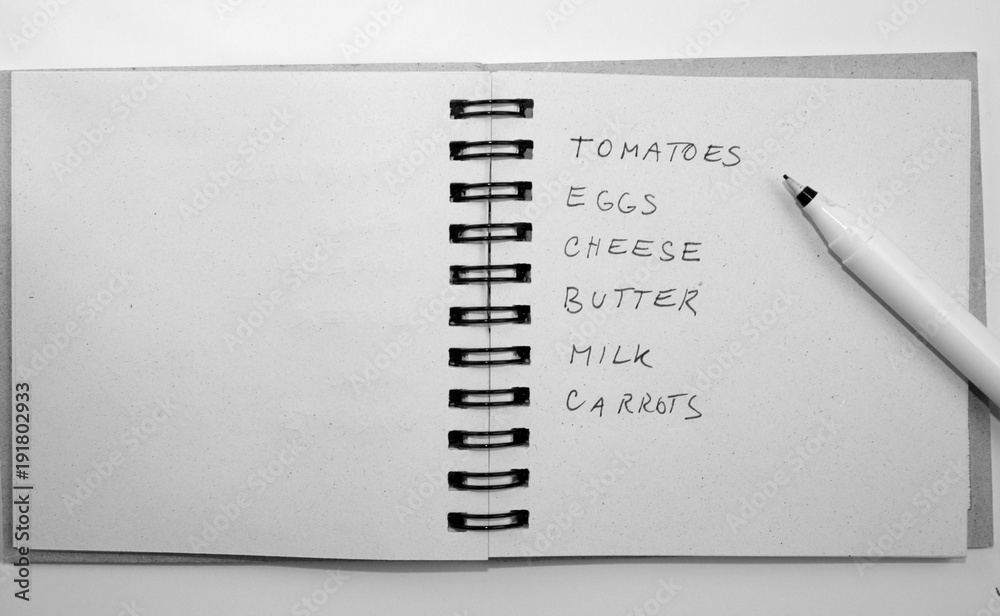 TOMATOES
EGGS
CHEESE
BUTTER
MILK
CARROTS
Adobe Stock | #191802933